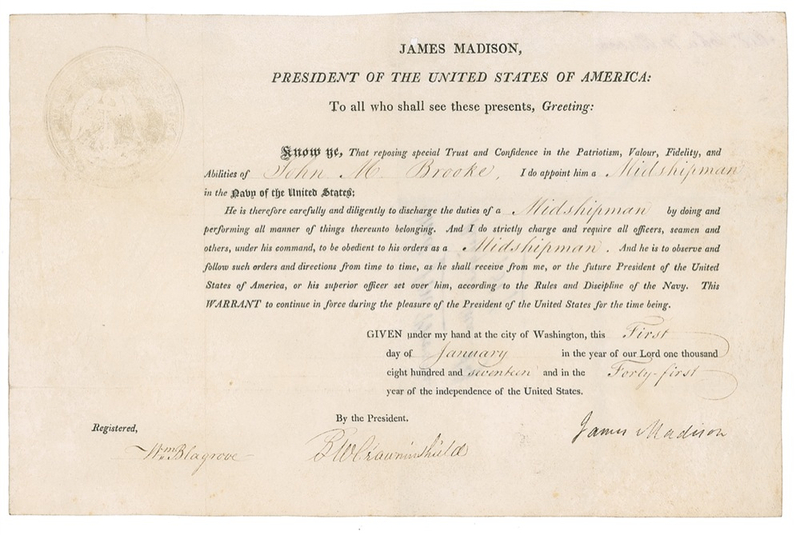 JAMES MADISON,
PRESIDENT OF THE UNITED STATES OF AMERICA:
To all who shall see these presents, Greeting:
Know ye, That reposing special Trust and Confidence in the Patriotism, Valour, Fidelity, and
Abilities of John M. Brooke, I do appoint him a Midshipman
in the Navy of the United States;
He is therefore carefully and diligently to discharge the duties of a Midshipman by doing and
performing all manner of things thereunto belonging. And I do strictly charge and require all officers, seamen and
others, under his command, to be obedient to his orders as a Midshipman. And he is to observe and
follow such orders and directions from time to time, as he shall receive from me, or the future President of the United
States of America, or his superior officer set over him, according to the Rules and Discipline of the Navy. This
WARRANT to continue in force during the pleasure of the President of the United States for the time being.
GIVEN under my hand at the city of Washington, this First
day of January in the year of our Lord one thousand
eight hundred and seventeen and in the Forty-first
year of the independence of the United States.
By the President.
Registered,
James Madison
Wm Blagrove
BW Crowninshield